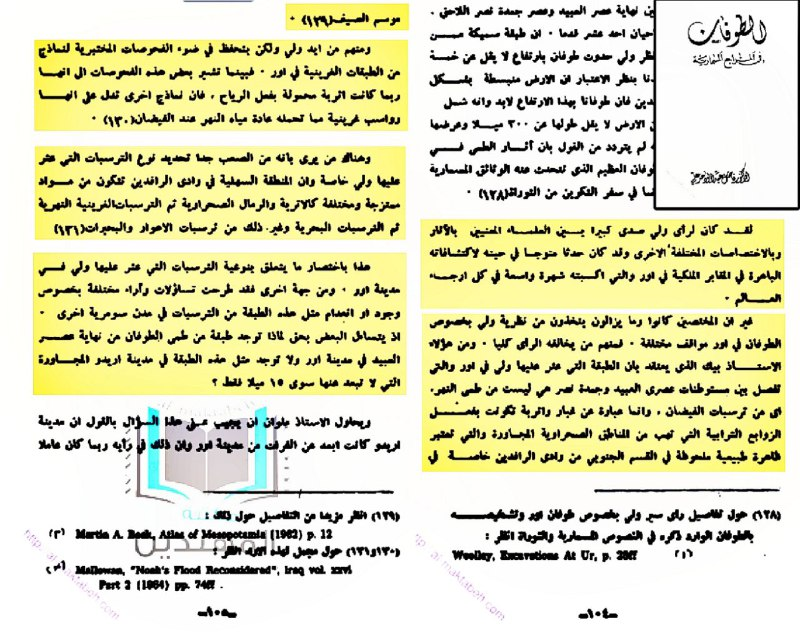 الطوفان
في المراجع المسمارية
ين نهاية عصر العبيد وعصر جمدة نصر اللاحق .
أحيان احد عشر قدما . ان طبقة سميكة من
نظر ولي حدوث طوفان بارتفاع لا يقل عن خمسة
نا بنظر الاعتبار ان الارض منبسطة بشكل
دين فان طوفانا بهذا الارتفاع لابد وانه شمل
ن الارض لا يقل طولها عن ٣٠٠ ميلا وعرضها
ه لم يتردد من القول بان آثار الطمي في
وفان العظيم الذى تتحدث عنه الوثائق المسمارية
ضا في سفر التكوين من التوراة(١٢٨) .
لقد كان لرأى ولي صدى كبيرا بين العلماء المعنيين بالآثار
وبالاختصاصات المختلفة الاخرى وقد كان حدثا متوجا في حينه لاكتشافاته
الباهرة في المقابر الملكية في اور والتي اكسبته شهرة واسعة في كل ارجاء
العالم .
غير ان المختصين كانوا وما يزالون يتخذون من نظرية ولي بخصوص
الطوفان في اور مواقف مختلفة . فمنهم من يخالفه الرأى كليا . ومن هؤلاء
الاستاذ بيك الذي يعتقد بان الطبقة التي عثر عليها ولي في اور والتي
تفصل بين مستوطنات عصرى العبيد وجمدة نصر هي ليست من طمى النهر،
اى من ترسبات الفيضان ، وانما عبارة عن غبار واتربة تكونت بفعل
الزوابع الترابية التي تهب من المناطق الصحراوية المجاورة والتي تعتبر
ظاهرة طبيعية ملحوظة في القسم الجنوبي من وادى الرافدين خاصة في
(١٢٨) حول تفاصيل راى سير ولي بخصوص طوفان اور وتشخيصه
بالطوفان الوارد ذكره في النصوص المسمارية والتوراة انظر :
Woolley, Excavations At Ur, p. 26ff
—١٠٤—
موسم الصيف(١٢٩) .
ومنهم من ايد ولي ولكن بتحفظ في ضوء الفحوصات المختبرية لنماذج
من الطبقات الغرينية في اور . فبينما تشير بعض هذه الفحوصات الى انها
ربما كانت اتربة محمولة بفعل الرياح ، فان نماذج اخرى تدل على انها
رواسب غرينية مما تحمله عادة مياه النهر عند الفيضان(١٣٠) .
وهناك من يرى بانه من الصعب جدا تحديد نوع الترسبات التي عثر
عليها ولي خاصة وان المنطقة السهلية في وادى الرافدين تتكون من مواد
ممتزجة ومختلفة كالاتربة والرمال الصحراوية ثم الترسبات الغرينية النهرية
ثم الترسبات البحرية وغير ذلك من ترسبات الاهوار والبحيرات(١٣١)
هذا باختصار ما يتعلق بنوعية الترسبات التي عثر عليها ولي في
مدينة اور . ومن جهة اخرى فقد طرحت تساؤلات وآراء مختلفة بخصوص
وجود او انعدام مثل هذه الطبقة من الترسبات في مدن سومرية اخرى .
اذ يتساءل البعض بحق لماذا توجد طبقة من طمي الطوفان من نهاية عصر
العبيد في مدينة اور ولا توجد مثل هذه الطبقة في مدينة اريدو المجاورة
التي لا تبعد عنها سوى ١٥ ميلا فقط ؟
ويحاول الاستاذ ملوان ان يجيب على هذا السؤال بالقول ان مدينة
اريدو كانت ابعد عن الفرات من مدينة اور وان ذلك في رأيه ربما كان عاملا
(١٢٩) انظر مزيدا من التفاصيل حول ذلك :
Martin A. Beek, Atlas of Mesopotamia (1962) p. 12
(١٣٠و١٣١) حول مجمل لهذه الآراء انظر :
Mallowan, "Noah's Flood Reconsidered", Iraq vol. xxvi
Part 2 (1964) pp. 74ff .
—١٠٥—